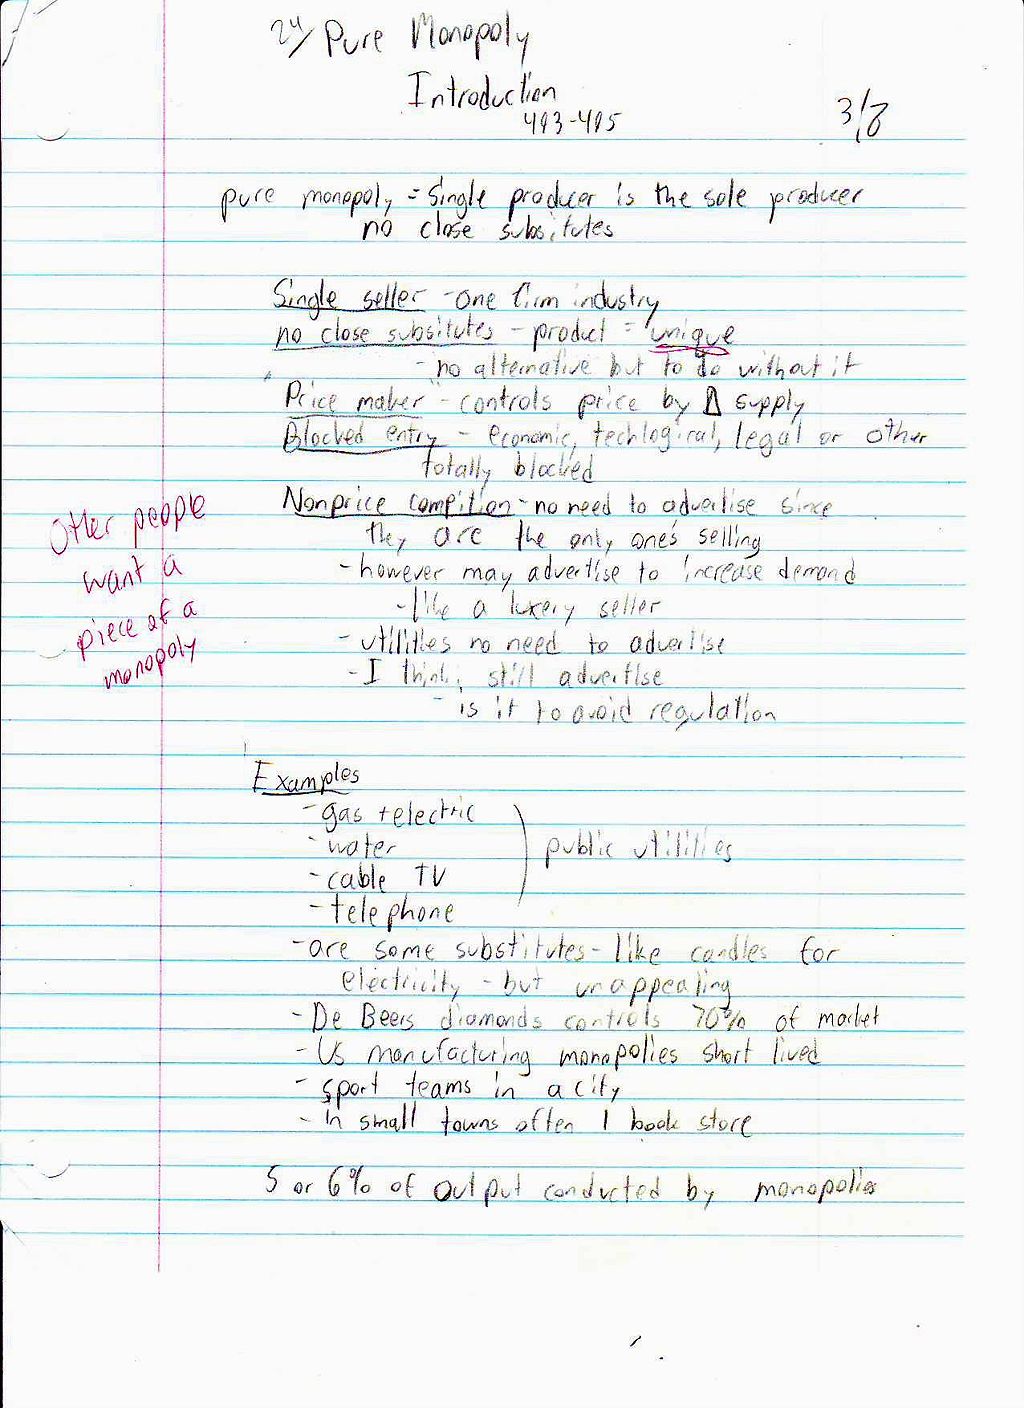 24/ Pure Monopoly
Introduction
493-495
3/8
pure monopoly = Single producer is the sole producer
no close subsitutes
Single seller - one firm industry
no close subsitutes - product = unique
- no alternative but to do without it
"Price maker" - controls price by Δ supply
Blocked entry - economic, techlogical, legal or other
totally blocked
Nonprice compition - no need to advertise since
they are the only one's selling
- however may advertise to increase demand
- like a luxery seller
- utilities no need to advertise
- I think still advertise
- is it to avoid regulation
Other people
want a
piece of a
monopoly
Examples
- gas + electric
- water
- cable TV
- telephone
public utilities
- are some substitutes - like candles for
electricity - but unappealing
- De Beers diamonds controls 70% of market
- US manufacturing monopolies short lived
- sport teams in a city
- in small towns often 1 book store
5 or 6% of output conducted by monopolies